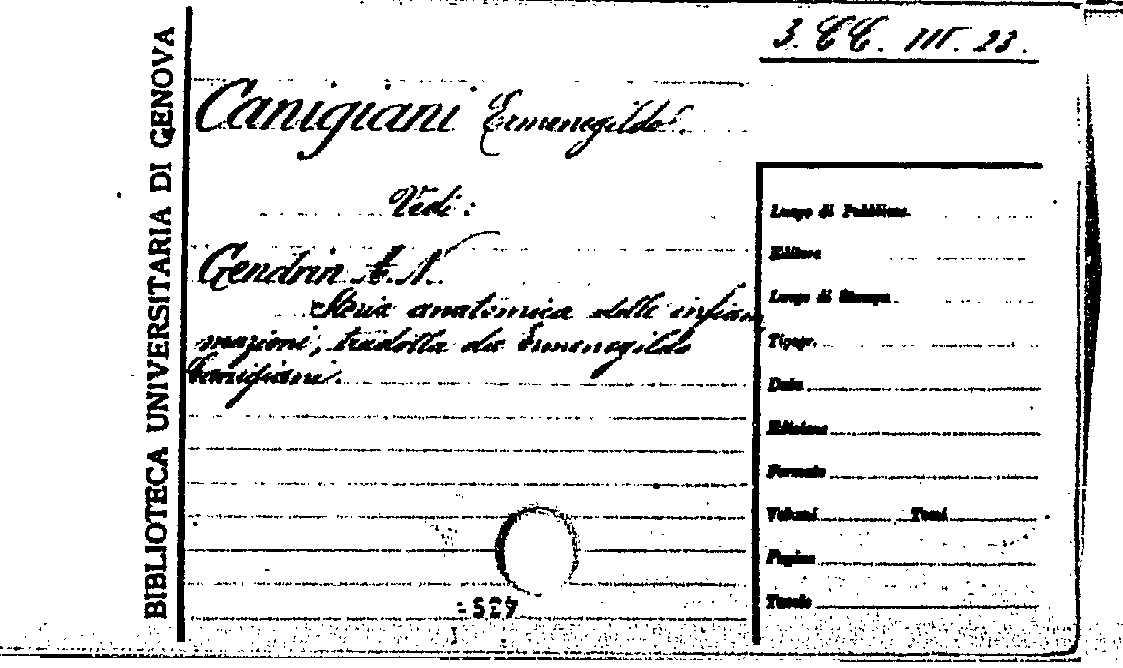 3. CC. III. 23.
BIBLIOTECA UNIVERSITARIA DI GENOVA
Canigiani Ermenegildo.
Vedi:
Gendrin A. N.
Storia anatomica delle infiam
mazioni, tradotta da Ermenegildo
Canigiani.
Luogo di Pubblicaz.
Editore
Luogo di Stampa
Tipogr.
Data
Edizione
Formato
Volumi Tomi
Pagine
Tavole